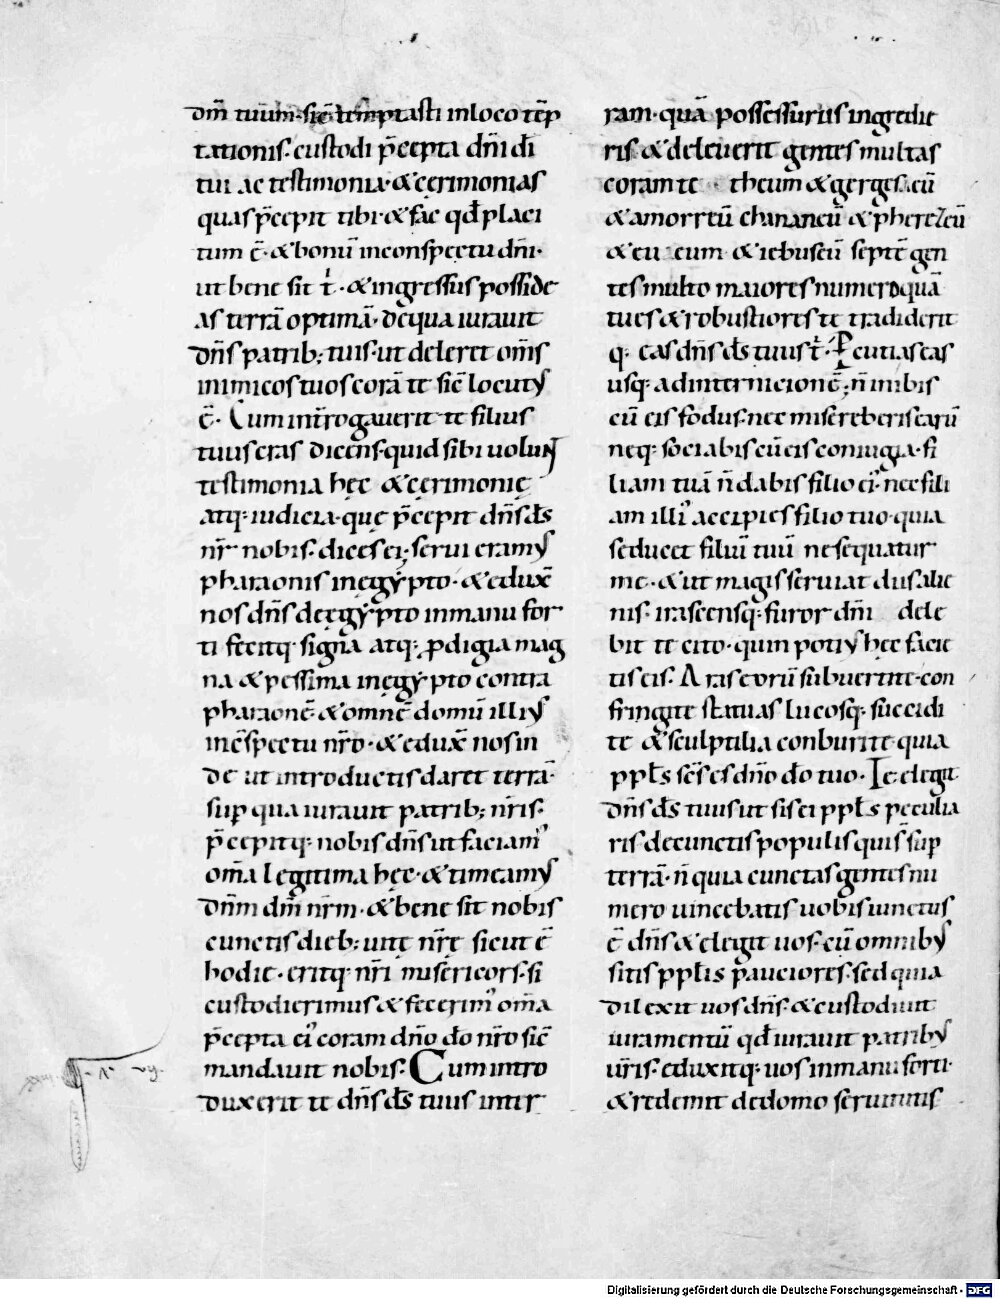 dm̄ tuum· sic̄ temptasti in loco tēp
tationis· custodi p̄cepta dn̄i dī
tui ac testimonia· & cęrimonias
quas p̄cepit tibi· & fac qđ placi
tum ē· & bonū in conspectu dn̄i·
ut bene sit t̄· & ingressus posside
as terrā optimā· de qua iurauit
dn̄s patrib; tuis· ut deleret om̄s
inimicos tuos corā te sic̄ locutus
ē· Cum int̄rogauerit te filius
tuus cras dicens· quid sibi uolunt
testimonia hęc & cęrimonię
atq· iudicia· quę p̄cepit dn̄s ds̄
nr̄ nobis· dices ei· serui eramus
pharaonis in ęgypto· & edux̄
nos dn̄s de ęgypto in manu for
ti fecitq· signa atq· ꝓdigia mag
na & pessima in ęgypto contra
pharaonē· & omnē domū illius
in c̄spectu nr̄o· & edux̄ nos in
de ut introductis daret terrā·
sup̄ qua iurauit patrib; nr̄is·
p̄cepitq· nobis dn̄s ut faciam'
om̄a legitima hęc· & timeamus
dn̄m dm̄ nr̄m· & bene sit nobis
cunctis dieb; uitę nr̄ę sicut ē
hodie· eritq· nr̄i misericors· si
custodierimus & fecerim' om̄a
p̄cepta ei' coram dn̄o do̅ nr̄o sic̄
mandauit nobis· Cum intro
duxerit te dn̄s ds̄ tuus in ter
ram· quā possessurus ingredie
ris· & deleuerit gentes multas
coram te theum & gerges eū
& amorreū chananeū & pherezeū
& eueum & iebuseū septē gen
tes multo maioris numeri quā
tu es & robustiores te tradiderit
q· eas dn̄s ds̄ tuus t̄· Percutias eas
usq· ad internicionē· n̄ inibis
cū eis fodus· nec misereberis earū
neq· sociabis cū eis coniugia· fi
liam tuā n̄ dabis filio ei'· nec fili
am illi' accipies filio tuo· quia
seducet filiū tuū ne sequatur
me· & ut magis seruiat diis alie
nis· irascensq· furor dn̄i dele
bit te cito· quin potius hęc facie
tis eis· Aras eorū subuertite· con
fringite statuas lucosq· succidi
te & sculptilia conburite· quia
ppl̄s sc̄s es dn̄o do̅ tuo· Te elegit
dn̄s ds̄ tuus ut sis ei ppl̄s peculia
ris· de cunctis populis qui s̄ sup̄
terrā· n̄ quia cunctas gentes nu
mero uincebatis uobis iunctus
ē dn̄s & elegit uos· cū omnibus
sitis ppl̄is pauciores· sed quia
dilexit uos dn̄s· & custodiuit
iuramentū qđ iurauit patribus
ur̄is· eduxitq· uos in manu forti·
& redemit de domo seruitutis
Digitalisierung gefördert durch die Deutsche Forschungsgemeinschaft - DFG